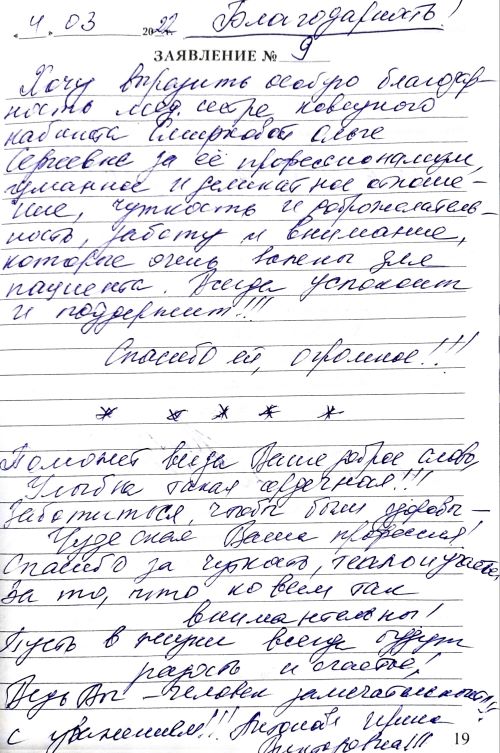 "4" 03 2022 Благодарность!
ЗАЯВЛЕНИЕ № 9
Хочу выразить особую благодар-
ность мед. сестре ковидного
кабинета Смирновой Ольге
Сергеевне за её профессионализм,
гуманное и деликатное отноше-
ние, чуткость и доброжелатель-
ность, заботу и внимание,
которые очень важны для
пациента. Всегда успокоит
и поддержит!!!
Спасибо ей, огромное!!!
* * * * *
Поможет всегда Ваше доброе слово,
Улыбка такая сердечная!!!
Заботиться, чтобы были здоровы –
Чудесная Ваша профессия!
Спасибо за чуткость, тепло и участье
За то, что ко всем так
внимательны!
Пусть в жизни всегда будут
радость и счастье,
Ведь Вы – человек замечательный!!!
С уважением!!! Ирина
Викторовна!!!
19